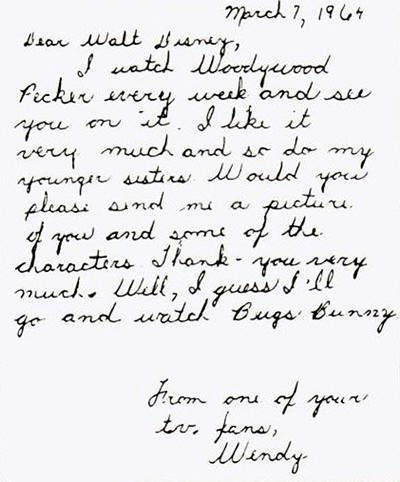 March 7, 1964
Dear Walt Disney,
I watch Woodywood
Pecker every week and see
you on it. I like it
very much and so do my
younger sisters. Would you
please send me a picture
of you and some of the
characters. Thank-you very
much. Well, I guess I'll
go and watch Bugs Bunny.
From one of your
t.v. fans,
Wendy